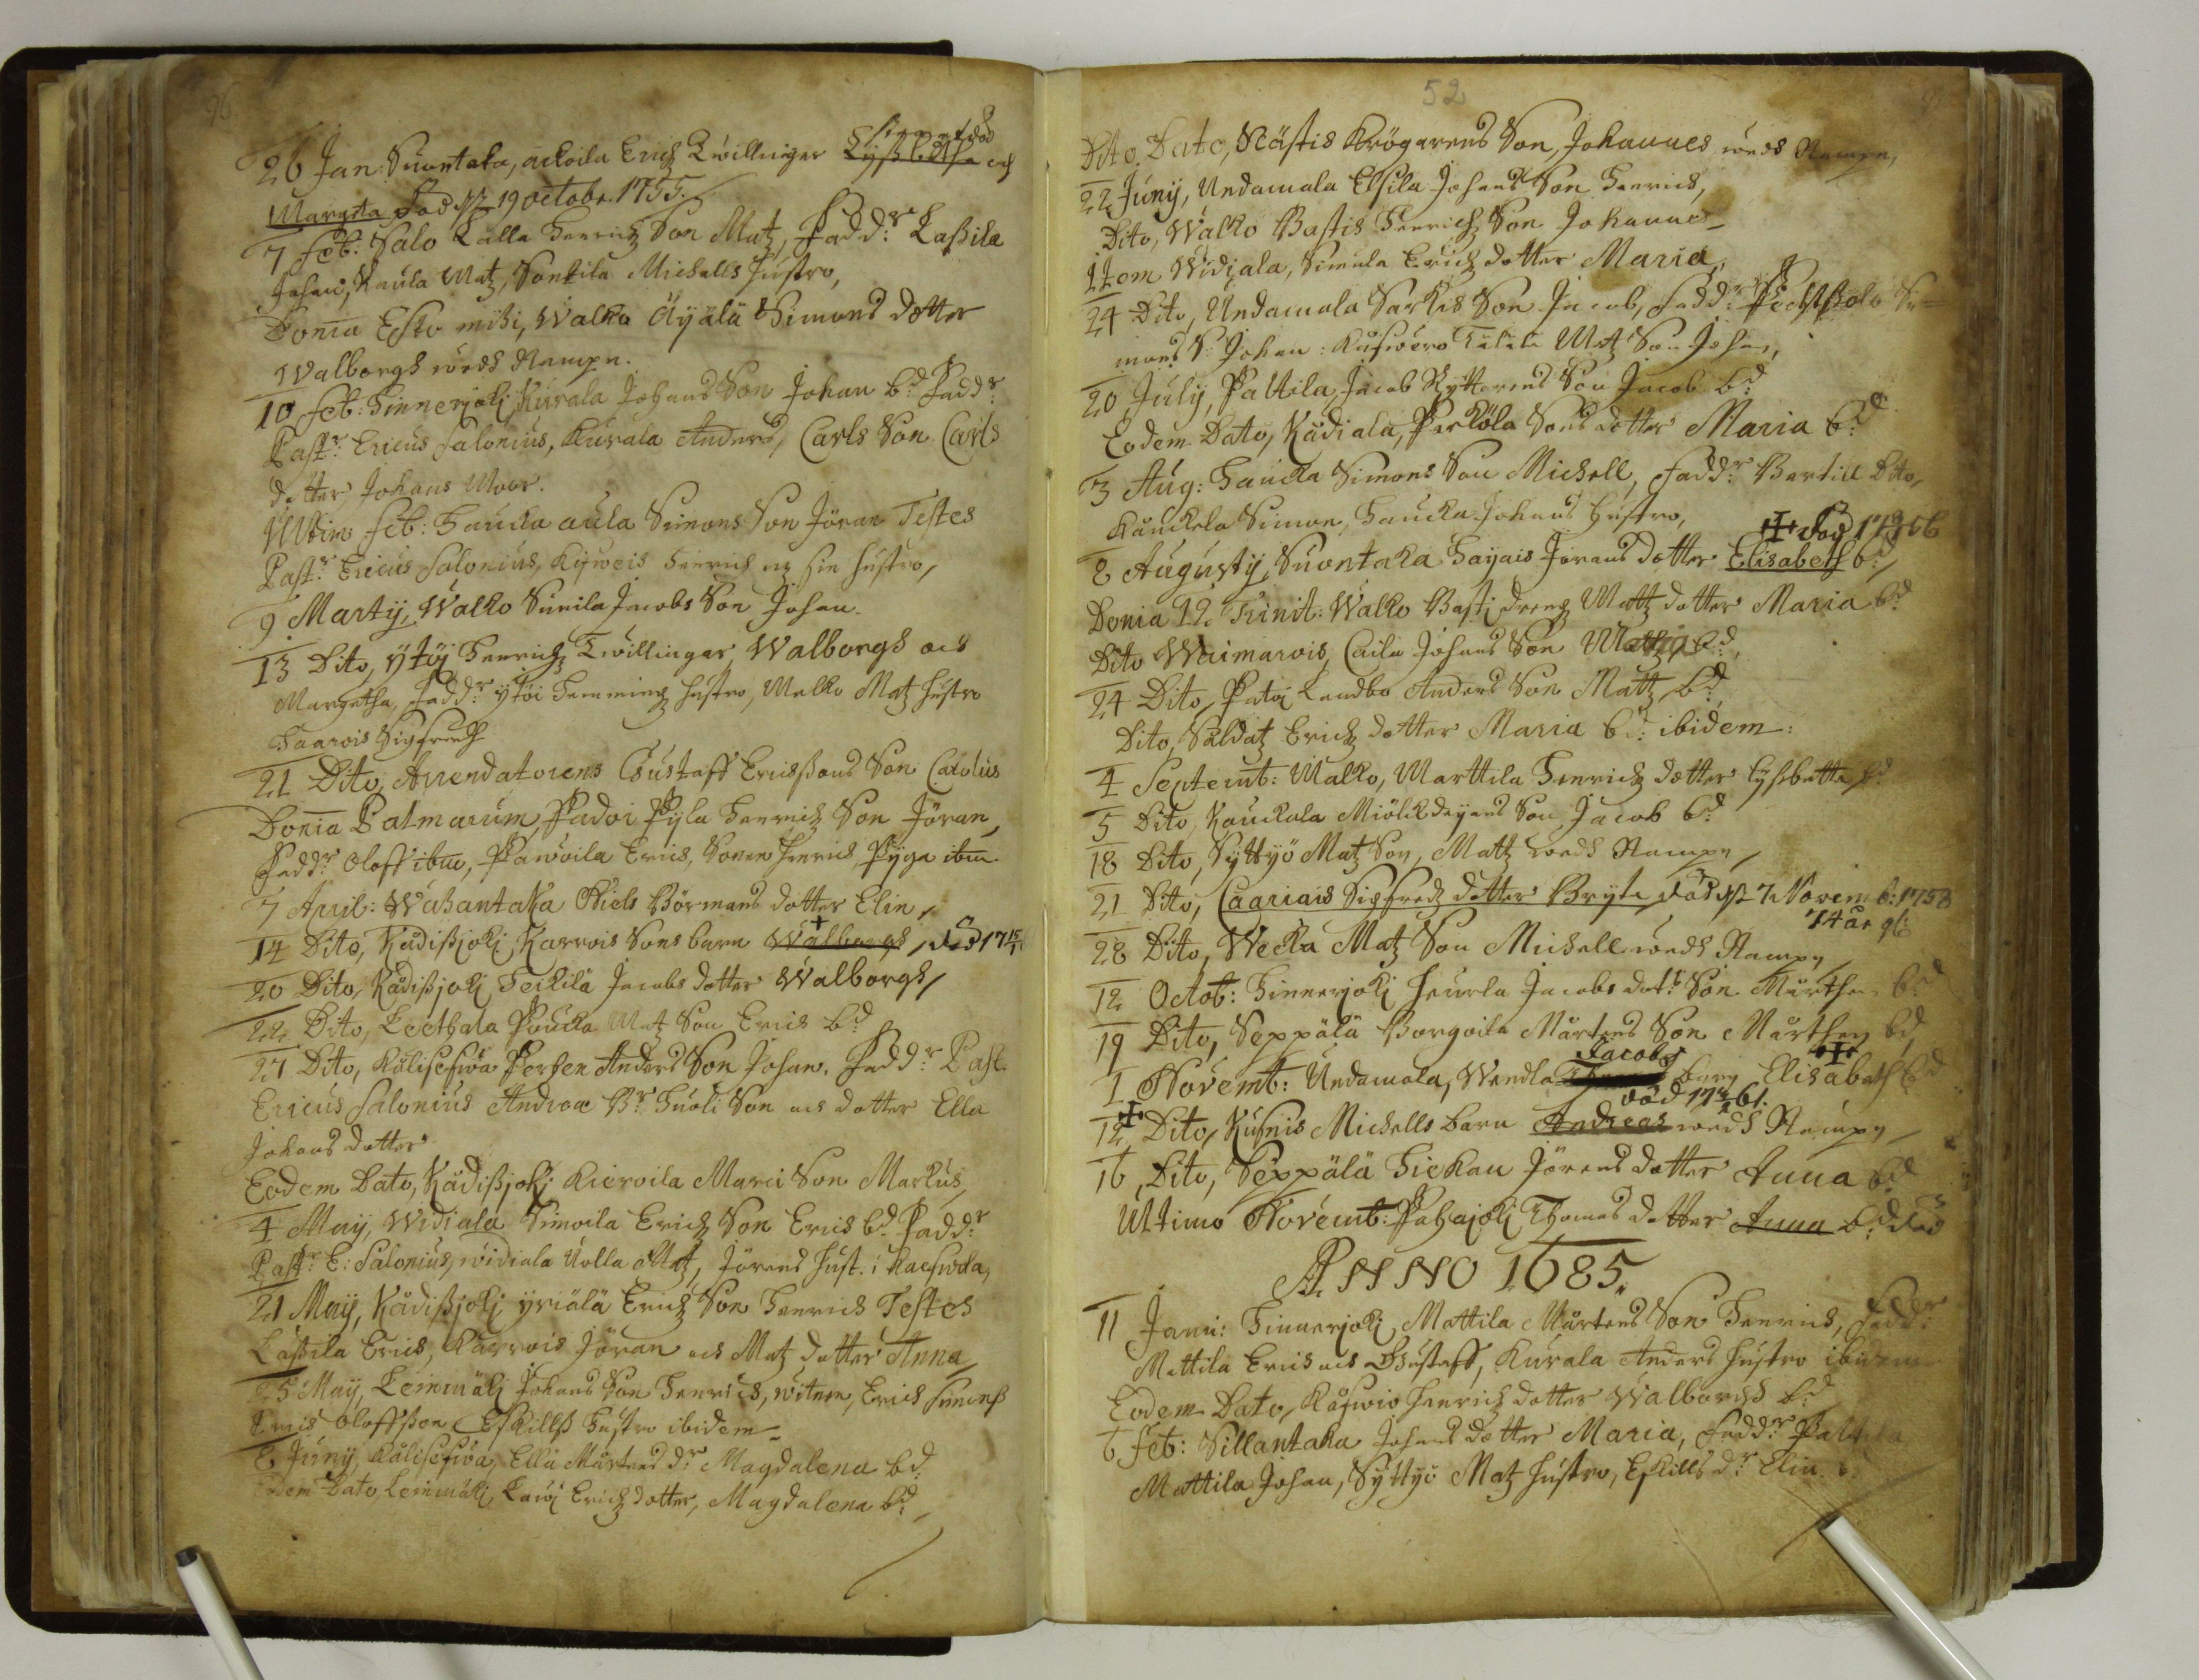 96.
d. död
26 Jan: Suontaka, ackoila Erich Twillingar Lyßbetha och
Margeta död d. 19 octobr. 1755.
7 feb: Salo Lalla Henrich Son Matz, Fadd:r Laßila
Johan, Kaula Matz, Sontila Michells hustro,
Donia Esto mihi, Walko Äyälä Simons dotter
Walborgh wedh Nampn.
10 feb: Hinnerjoki Kurala Johans Son Johan b:d Fadd:r
Past:r Ericus Salonius, Kurala Anders, Carls Son Carls
dotter Johans Moor.
Ultim: feb: Haucka aula Simons Son Jöran Testes
Past:r Ericus Salonius, Henrich och sin hustro,
9 Martij, Walko Simila Jacobs Son Johan
13 Dito, ytöi Henrich Twillingar Walborgh och
Margetha, Fadd:r ytöi Hemmingz hustro, Walko Matz hustro
Sigfredh
21 Dito, Arrendatorens Gustaff Erichßons Son Carolus
Donia Palmarum, Padoi Pyla Henrich Son Jöran,
Fadd:r Oloff ibm, Erich, Henrich, Pyga ibm.
7 April: Wahantaka Niels Börmans dotter Elin,
14 Dito, Kådißjoki Karrois Sons barn Walborgh, död 17
20 Dito, Kådißjoki Heikilä Jacobs dotter Walborgh,
22 Dito, Leethala Poucka Matz Son Erich b:d
27 Dito, Anders Son Johan. Fadd:r Past.
Ericus Salonius Andreae Son och dotter Ella
Johans dotter
Eodem Dato, Kådißjoki Kieroila Marci Son Markus,
4 Maij, Widiala Simoila Erich Son Erich b:d Fadd:r
Past:r E: Salonius, widiala Uolla Matz, Jörens hust. i
21 Maij, Kådißjoki yriälä Erich Son Henrich Testes
Laßila Erich, Karrois Jöran och Matz dotter Anna,
25 Maij, Leinmäki Johans Son Henrich, witnen, Erich
Erich Oloffßon Eskillß hustro ibidem
8 Junij, Ella Mårtens d:r Magdalena bd:
Eodem Dato Leinmäki, Erich dotter, Magdalena b:d,
52
Dito Dato, Nästis Krögarens Son, Johannes wedh Nampn,
22 Junij, Undamala Ellila Johans Son Henrich,
Dito, Walko Bastis Henrich Son Johannes
Item Widiala, Simula Erich dotter Maria,
24 Dito, Undamala Sarkis Son Jacob, Fadd:r
mons S: Johan: Matz Son Johan,
20 July, Paltila Jacob Ryttarens Son Jacob b:d
Eodem Dato, Kådiala, Perköla Sons dotter Maria b:d
3 Aug: Haucka Simons Son Michell, Fadd:r Bertill Dito,
Kauckola Simon, Haucka Johans hustro,
död 17
8 Augustij, Suontaka Jörans dotter Elisabeth b:d,
Donia 12 Trinit: Walko Basti drengz Matz dotter Maria b:d
Dito Waimarois, Caila Johans Son Mattz b:d,
24 Dito, Landbo Anders Son Mattz b:d
Dito, Soldatz Erich dotter Maria b:d: ibidem:
4 Septemb: Walko, Marttila Henrich dotter Lysbetta b:d
5 Dito Kauckala Son Jacob b:d
18 Dito, Syttyö Matz Son, Mattz wedh Nampn,
21 Dito, Caariais Sigfredz dotter Bryta, död d. 7 Novemb: 1758
74 år gl:
28 Dito, Wecka Matz Son Michell wedh Nampn
12 Octob: Hinnerjoki Heurla Jacobs dott:r Son Mårthen b:d
19 Dito, Seppälä Borgoila Mårtens Son Mårthen b:d
Jacobs
1 Novemb: Undamala, Wendla barn Elisabeth b:d
död 1761.
12 Dito, Michells barn Andreas wedh Nampn
16, Dito, Seppälä Hiekan Jörens dotter Anna b:d
Ultimo Novemb: Pahajoki Thomas dotter Anna b:d död
ANNO 1685.
11 Janu: Hinnerjoki Mattila Mårtens Son Henrich, Fadd:r
Mattila Erich och Gustaff, Kurala Anders hustro ibidem
Eodem Dato, Henrich dotter Walborgh b:d
6 Feb: Sillantaka Johans dotter Maria, Fadd:r Paltila
Mattila Johan, Syttyö Matz hustro, Eskills d:r Elin